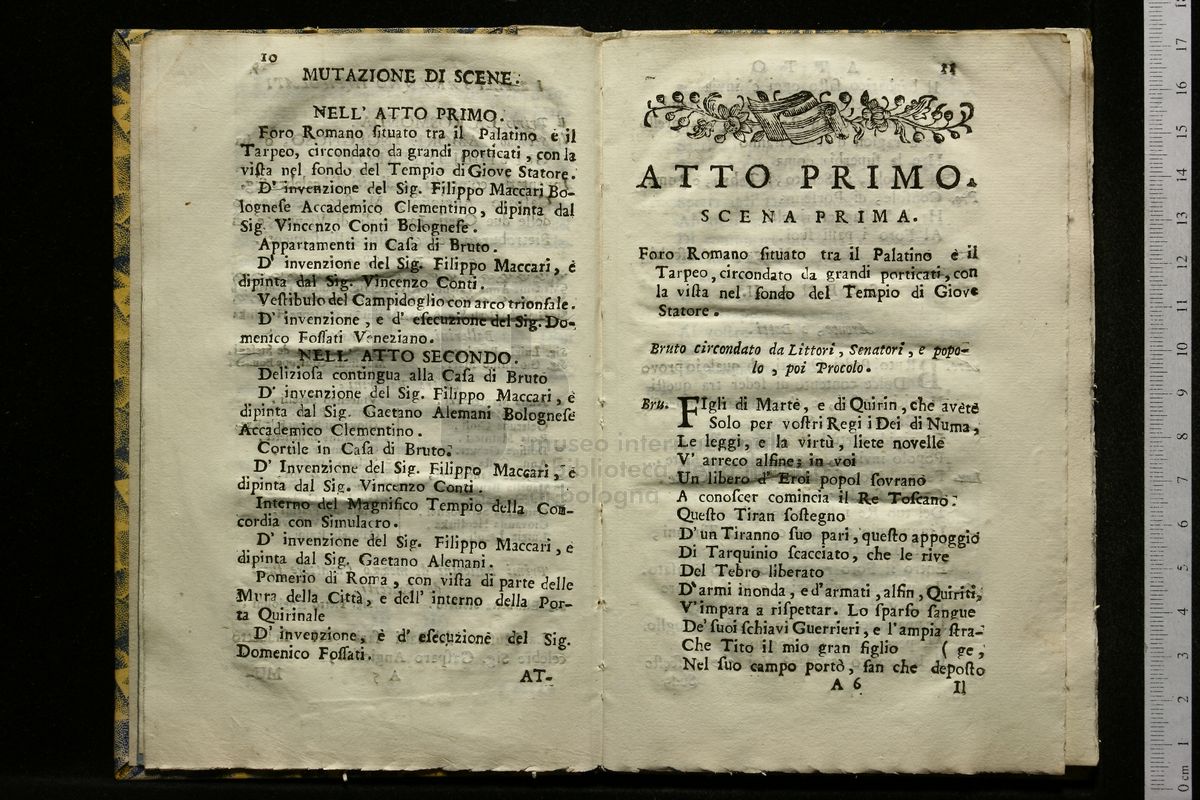 10
MUTAZIONE DI SCENE.
NELL' ATTO PRIMO.
Foro Romano ſituato tra il Palatino è il
Tarpeo, circondato da grandi porticati, con la
viſta nel fondo del Tempio di Giove Statore.
D' invenzione del Sig. Filippo Maccari Bo-
logneſe Accademico Clementino, dipinta dal
Sig. Vincenzo Conti Bologneſe.
Appartamenti in Caſa di Bruto.
D' invenzione del Sig. Filippo Maccari, è
dipinta dal Sig. Vincenzo Conti.
Veſtibulo del Campidoglio con arco trionfale.
D' invenzione, e d' eſecuzione del Sig. Do-
menico Foſſati Veneziano.
NELL' ATTO SECONDO.
Delizioſa contingua alla Caſa di Bruto
D' invenzione del Sig. Filippo Maccari, è
dipinta dal Sig. Gaetano Alemani Bologneſe
Accademico Clementino.
Cortile in Caſa di Bruto.
D' Invenzione del Sig. Filippo Maccari, è
dipinta dal Sig. Vincenzo Conti.
Interno del Magnifico Tempio della Con-
cordia con Simulacro.
D' invenzione del Sig. Filippo Maccari, è
dipinta dal Sig. Gaetano Alemani.
Pomerio di Roma, con viſta di parte delle
Mura della Città, e dell' interno della Por-
ta Quirinale
D' invenzione, è d' eſecuzione del Sig.
Domenico Foſſati.
AT-
11
ATTO PRIMO.
SCENA PRIMA.
Foro Romano ſituato tra il Palatino è il
Tarpeo, circondato da grandi porticati, con
la viſta nel fondo del Tempio di Giove
Statore.
Bruto circondato da Littori, Senatori, e popo-
lo, poi Procolo.
Bru. FIgli di Marte, e di Quirin, che avete
Solo per voſtri Regi i Dei di Numa,
Le leggi, e la virtù, liete novelle
V' arreco alfine; in voi
Un libero d' Eroi popol ſovrano
A conoſcer comincia il Re Toſcano:
Queſto Tiran ſoſtegno
D' un Tiranno ſuo pari, queſto appoggio
Di Tarquinio ſcacciato, che le rive
Del Tebro liberato
D' armi inonda, e d'armati, alfin, Quiriti,
V' impara a riſpettar. Lo ſparſo ſangue
De' ſuoi ſchiavi Guerrieri, e l'ampia ſtra-
Che Tito il mio gran figlio ( ge,
Nel ſuo campo portò, ſan che depoſto
A 6 Il
museo inter
biblioteca de
di bologna
17
16
15
14
13
12
11
10
9
8
7
6
5
4
3
2
1
0 cm